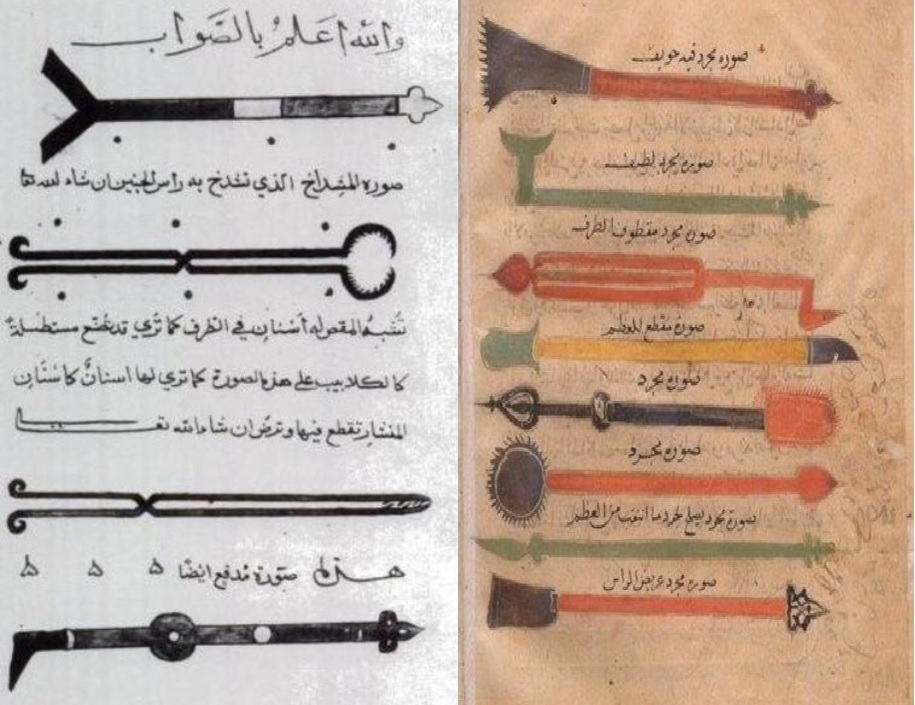 والله اعلم بالصواب
صوره المشداخ الذي تشدخ به راس الجنين ان شاء الله ها
تشبه المقص له أسنان في الطرف كما تري قد تصنع مستطيلة
كالكلاليب على هذه الصورة كما تري لها اسنان كاسنان
المنشار تقطع فيها وترض ان شاء الله
صورة مدفع ايضا ه ه ه
صوره مجرد فيه تجويف
صوره مجرد لطيف
صوره مجرد مقطوف الطرف
صورة مقطع للعظم
صوره مجرد
صورة مجرد
صورة مجرد يصلح لجرد ما انثقب من العظم
صوره مجرد عريض الراس